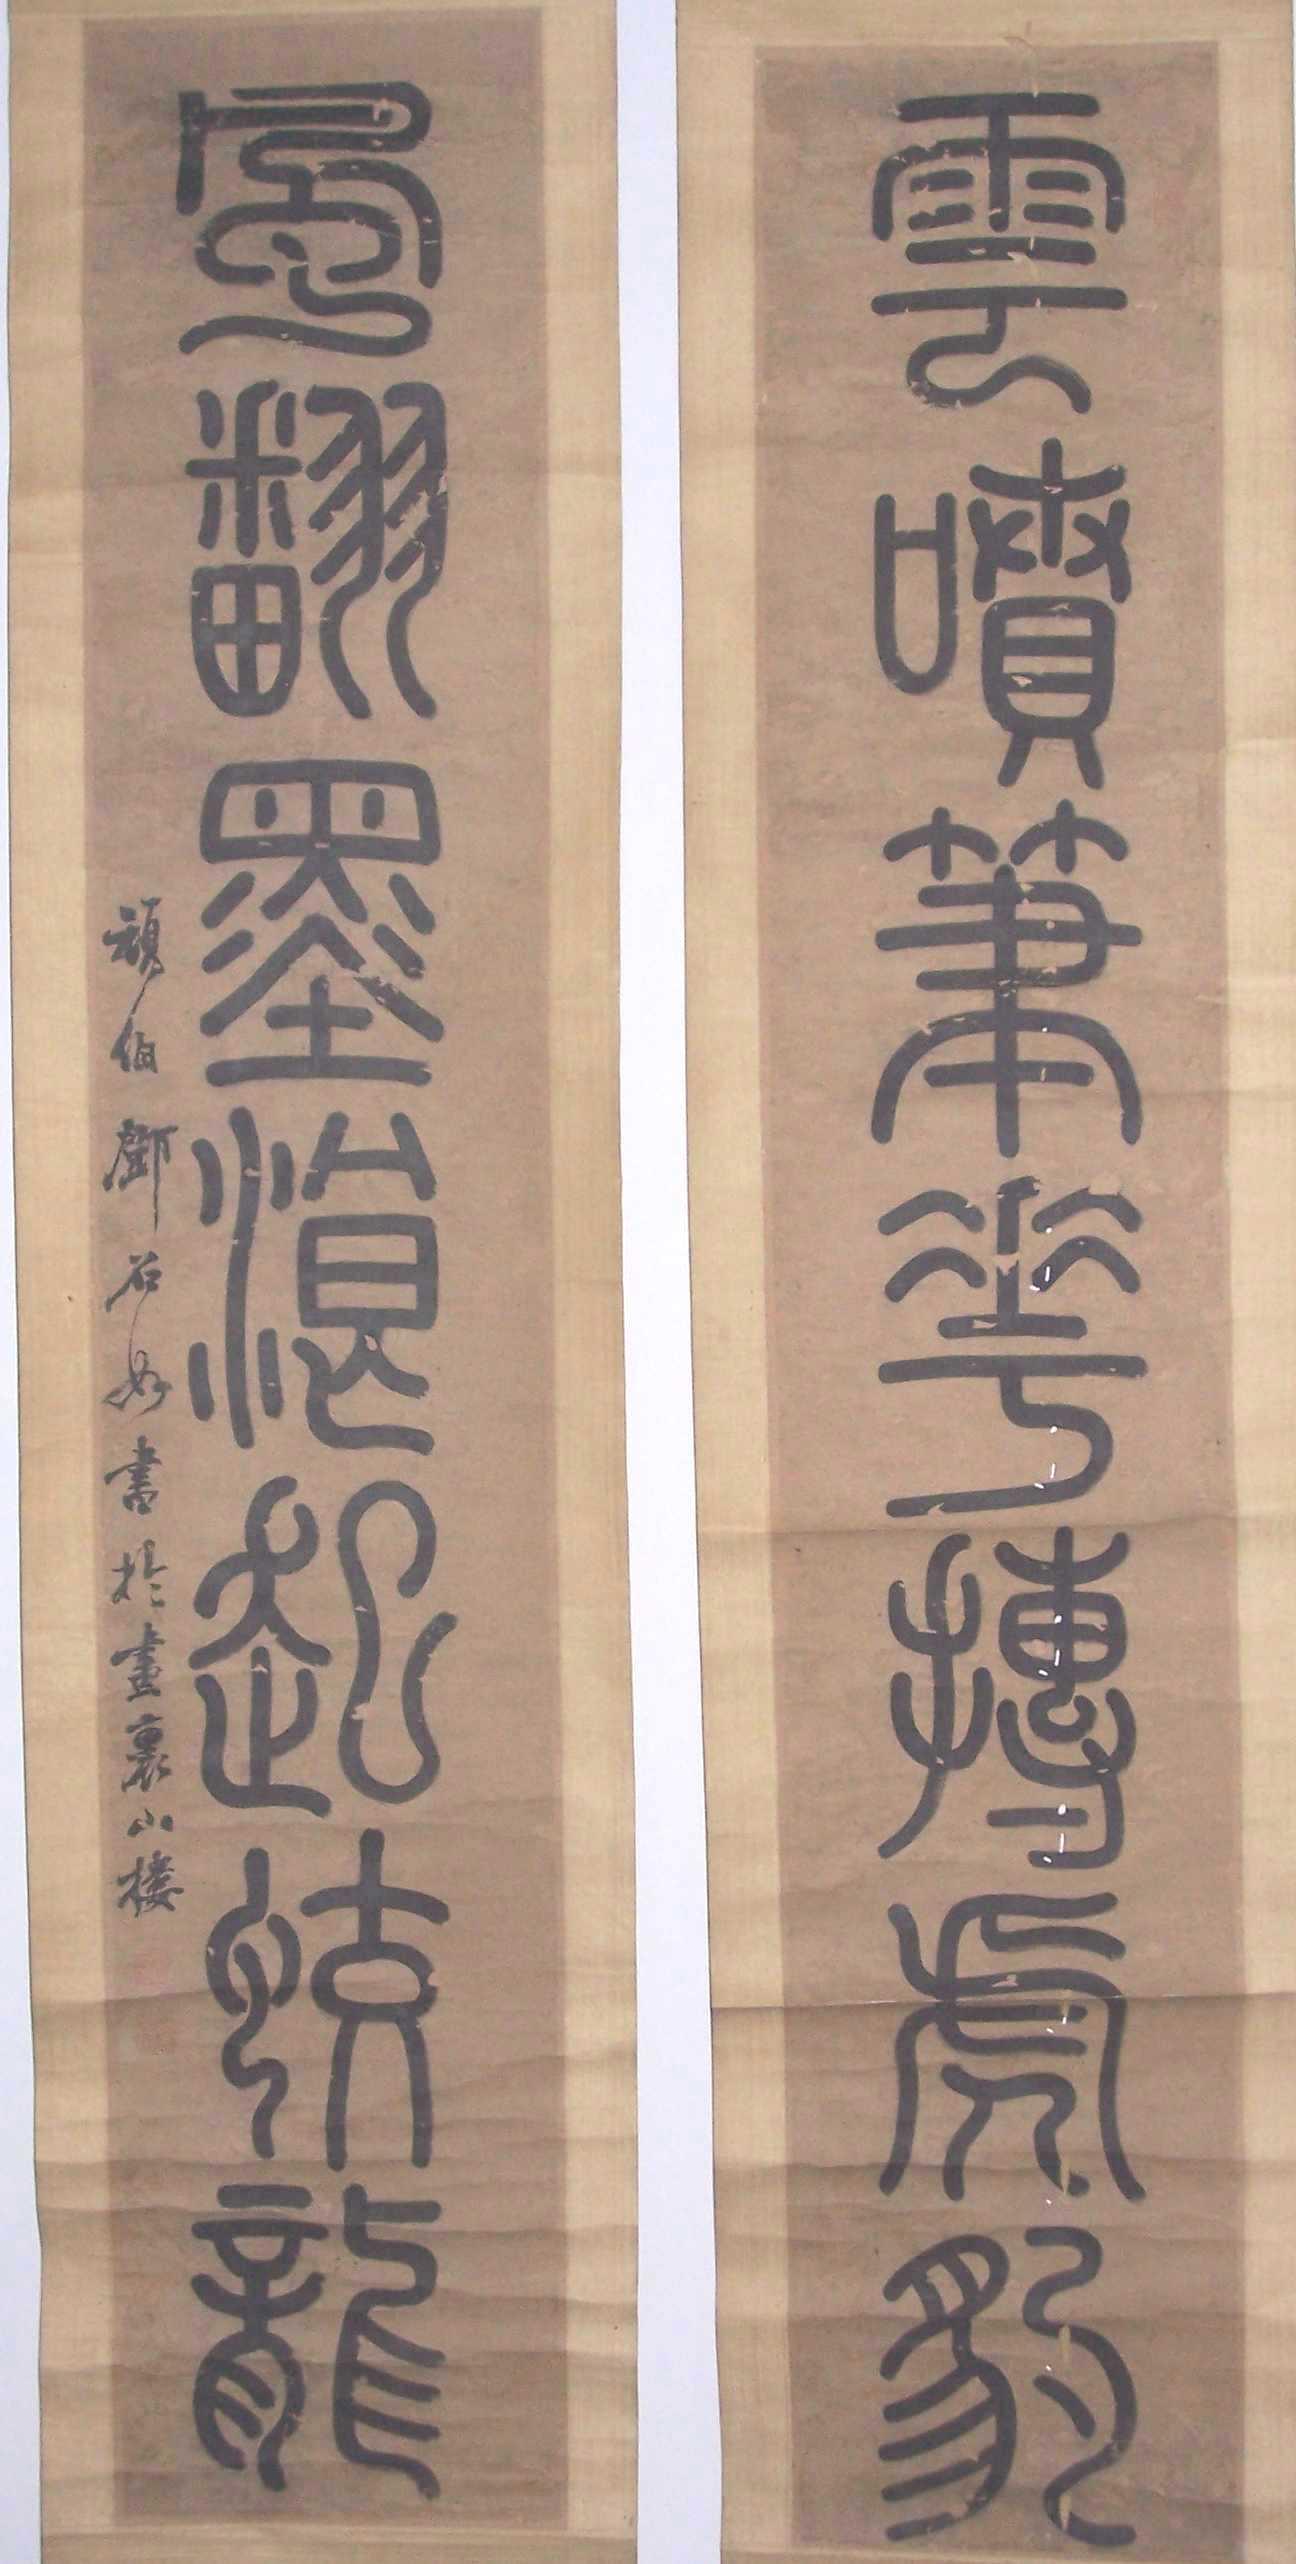 雲噴筆花摶虎豹
風翻墨浪起蛟龍
頑伯鄧石如書於畫裏山樓